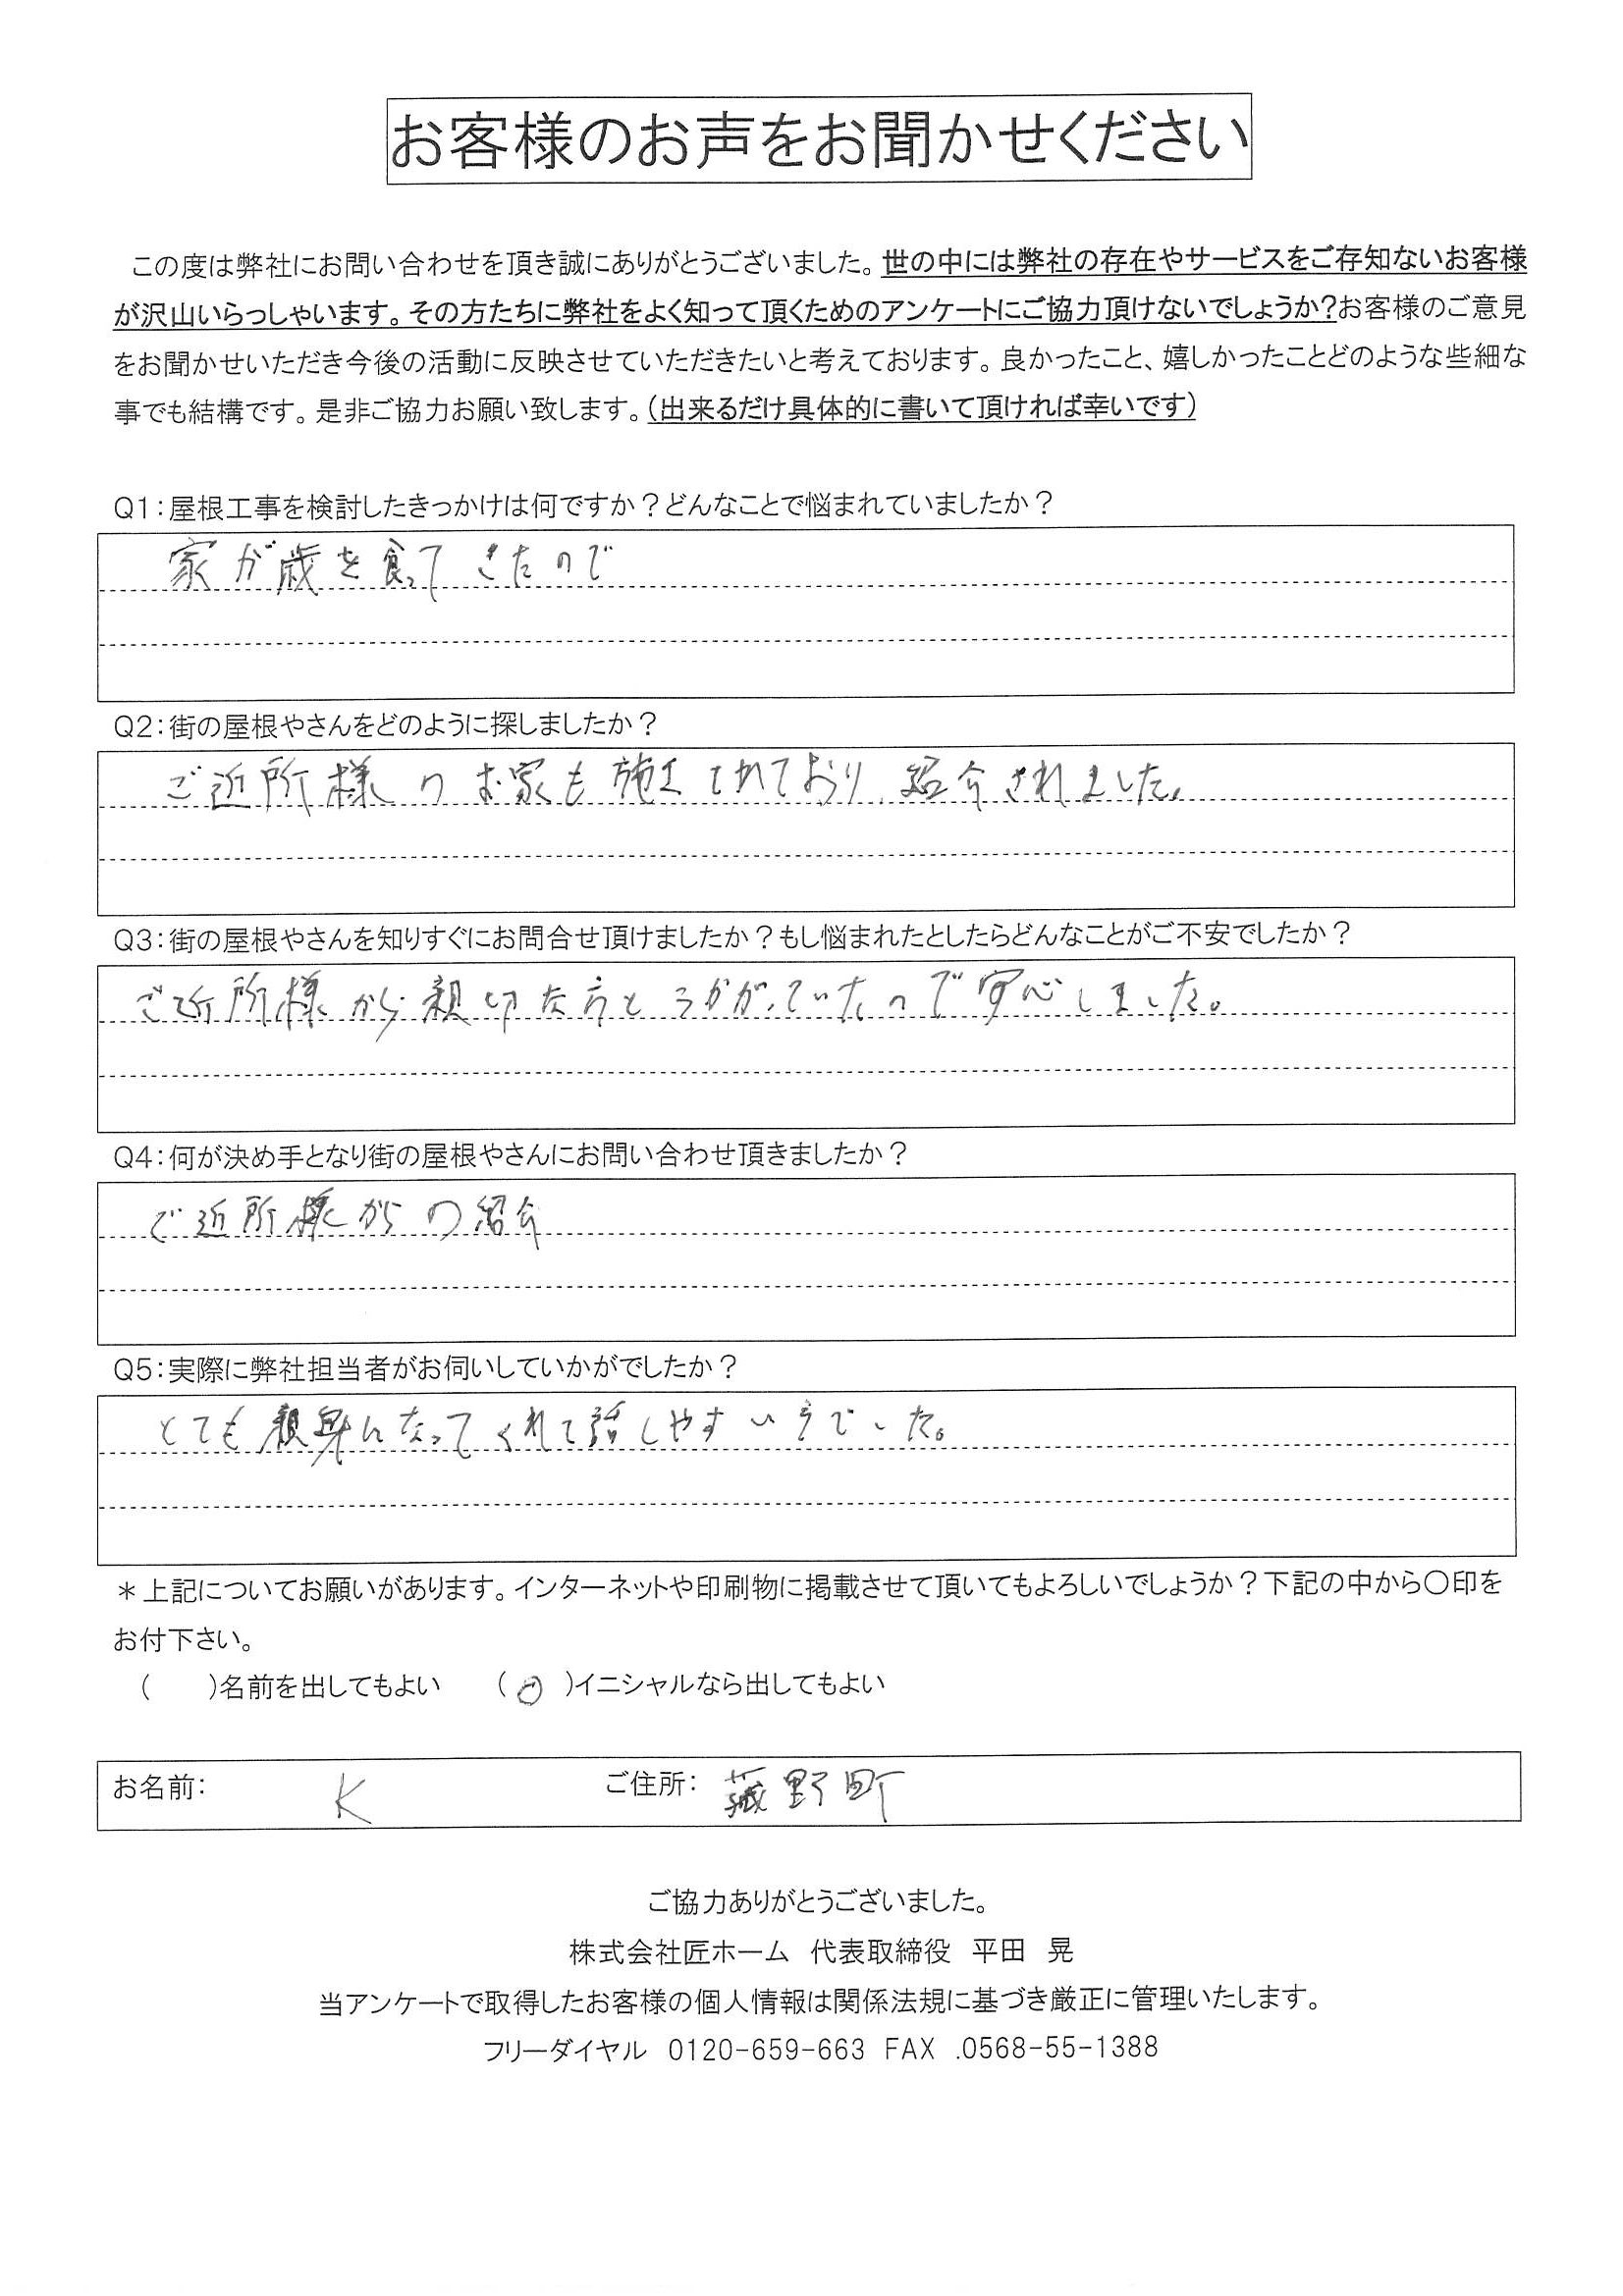 お客様のお声をお聞かせください
この度は弊社にお問い合わせを頂き誠にありがとうございました。世の中には弊社の存在やサービスをご存知ないお客様
が沢山いらっしゃいます。その方たちに弊社をよく知って頂くためのアンケートにご協力頂けないでしょうか?お客様のご意見
をお聞かせいただき今後の活動に反映させていただきたいと考えております。良かったこと、嬉しかったことどのような些細な
事でも結構です。是非ご協力お願い致します。(出来るだけ具体的に書いて頂ければ幸いです)
Q1:屋根工事を検討したきっかけは何ですか?どんなことで悩まれていましたか?
家が歳を食ってきたので
Q2:街の屋根やさんをどのように探しましたか?
ご近所様のお家も施工されており、紹介されました。
Q3:街の屋根やさんを知りすぐにお問合せ頂けましたか?もし悩まれたとしたらどんなことがご不安でしたか?
ご近所様から親切な方とうかがっていたので安心しました。
Q4:何が決め手となり街の屋根やさんにお問い合わせ頂きましたか?
ご近所様からの紹介
Q5:実際に弊社担当者がお伺いしていかがでしたか?
とても親身になってくれて話しやすい方でした。
*上記についてお願いがあります。インターネットや印刷物に掲載させて頂いてもよろしいでしょうか?下記の中から〇印を
お付下さい。
(　　)名前を出してもよい　(〇)イニシャルなら出してもよい
お名前: K ご住所: 菰野町
ご協力ありがとうございました。
株式会社匠ホーム 代表取締役 平田 晃
当アンケートで取得したお客様の個人情報は関係法規に基づき厳正に管理いたします。
フリーダイヤル 0120-659-663 FAX .0568-55-1388